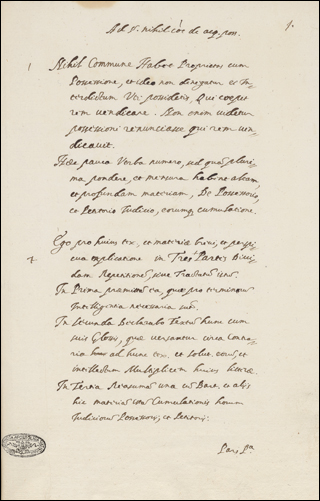 Ad §. nihil cõe de acq. poss.
1.
1 Nihil Commune Habet Proprietas cum
Possessione, et ideo non denegatur ei In
terdictum Uti possidetis, Qui coepit
rem uendicare. Non enim uidetur
possessioni renunciasse qui rem uen
dicauit.
Haec pauca Verba numero, sed quae pluri
ma pondere, et mensura habent altam,
et profundam materiam, De Possessorio,
et Petitorio Iudicio, eorumque cumulatione.
Ego pro huius tex. et materiae breui, et perspi
2 cua explicatione in Tres Partes Diui
dam Repetitionem, siue Tractatum
In Prima praemittam ea, quae pro terminorum
Intelligentia necessaria sunt.
In Secunda Declarabo Textum hunc cum
suis Glosis, quae uersantur circa contra
ria ad hunc tex. et solut. eorum, et
intellectum Multiplicem huius literae.
In Tertia
hic materiam Cumulationis horum
Iudiciorum Possessorii, et Petitorii.
Pars P.ra